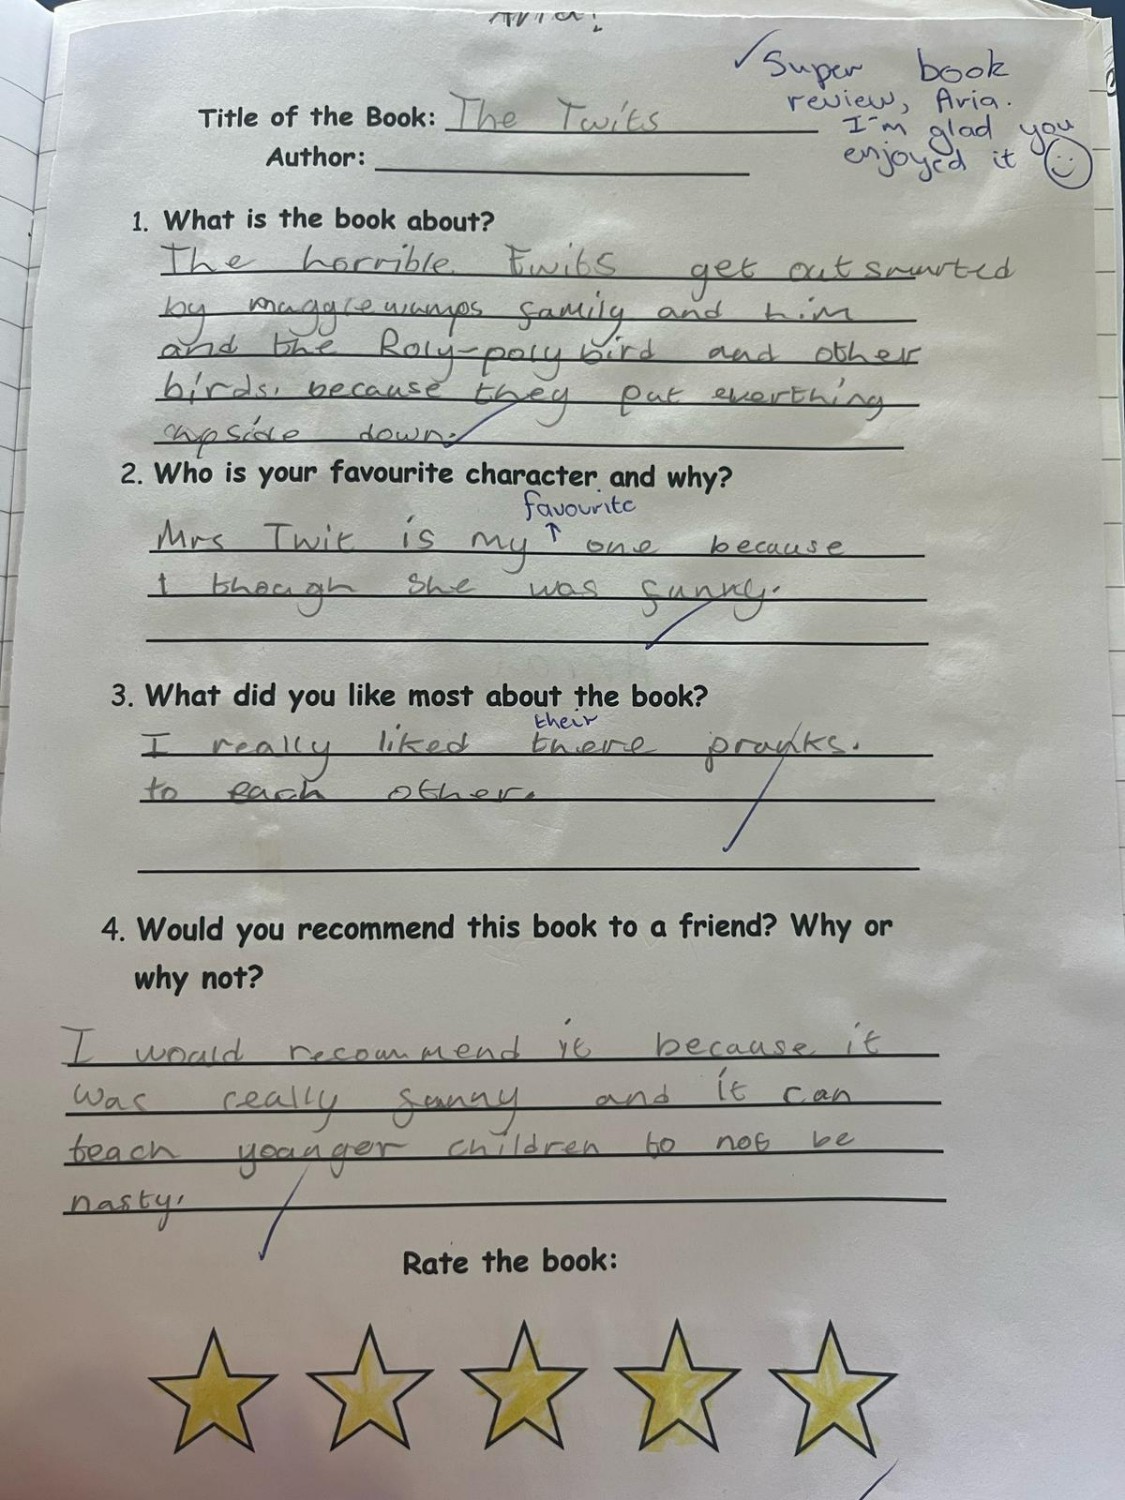 Aria!
✓ Super book
review, Aria.
I'm glad you
enjoyed it
Title of the Book: The Twits
Author:
1. What is the book about?
The horrible Twits get outsmarted
by mugglewumps family and him
and the Roly-poly bird and other
birds. because they put everthing
upside down.
2. Who is your favourite character and why?
favourite
Mrs Twit is my ↑ one because
I though she was funny.
3. What did you like most about the book?
their
I really liked there pranks.
to each other.
4. Would you recommend this book to a friend? Why or
why not?
I would recommend it because it
was really funny and it can
teach younger children to not be
nasty.
Rate the book: